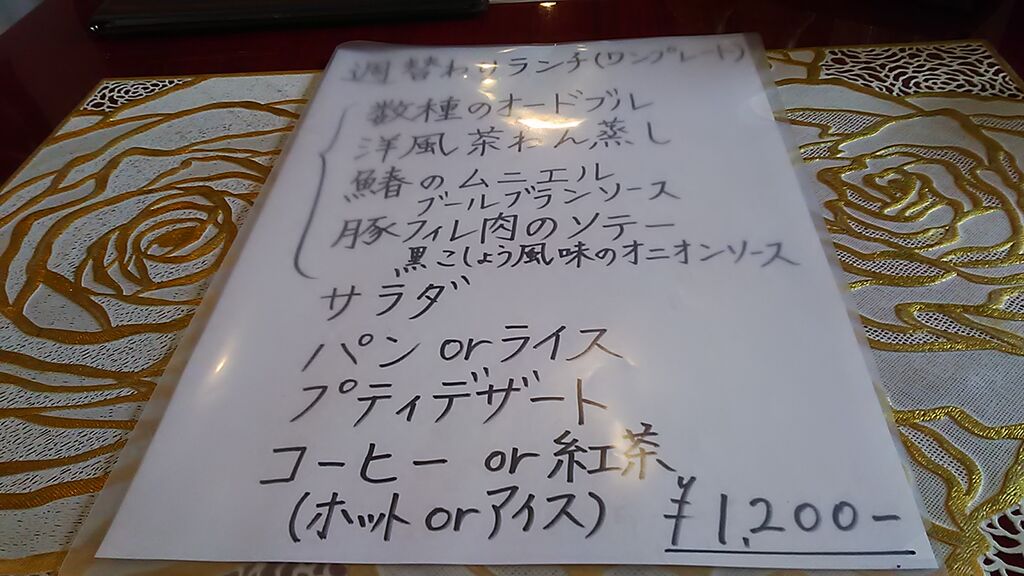 週替わりランチ(ワンプレート)
数種のオードブル
洋風茶わん蒸し
鰆のムニエル
ブールブランソース
豚フィレ肉のソテー
黒こしょう風味のオニオンソース
サラダ
パン or ライス
プティデザート
コーヒー or 紅茶
(ホット or アイス)
¥1,200-